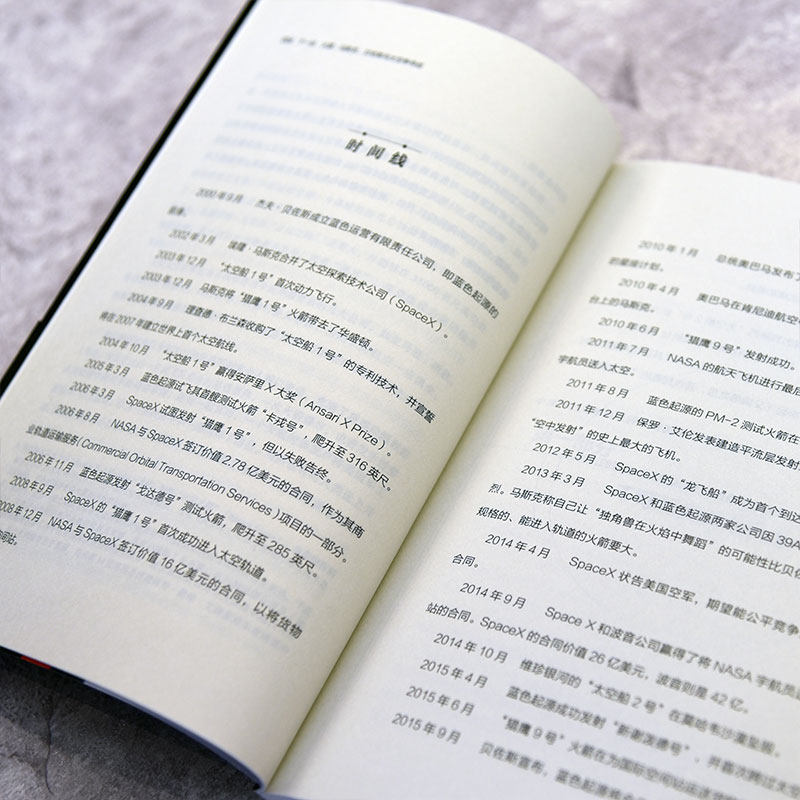 时间线
2000年9月 杰夫·贝佐斯成立蓝色运营有限责任公司，即蓝色起源的
前身。
2002年3月 埃隆·马斯克合并了太空探索技术公司（SpaceX）。
2003年12月 “太空船1号”首次动力飞行。
2003年12月 马斯克将“猎鹰1号”火箭带去了华盛顿。
2004年9月 理查德·布兰森收购了“太空船1号”的专利技术，并宣誓
将在2007年建立世界上首个太空航线。
2004年10月 “太空船1号”赢得安萨里X大奖（Ansari X Prize）。
2005年3月 蓝色起源试飞其首艘测试火箭“卡戎号”，爬升至316英尺。
2006年3月 SpaceX试图发射“猎鹰1号”，但以失败告终。
2006年8月 NASA与SpaceX签订价值2.78亿美元的合同，作为其商
业轨道运输服务（Commercial Orbital Transportation Services）项目的一部分。
2006年11月 蓝色起源发射“戈达德号”测试火箭，爬升至285英尺。
2008年9月 SpaceX的“猎鹰1号”首次成功进入太空轨道。
2008年12月 NASA与SpaceX签订价值16亿美元的合同，以将货物
间站。
2010年1月 总统奥巴马发布了
的星座计划。
2010年4月 奥巴马在肯尼迪航空
台上的马斯克。
2010年6月 “猎鹰9号”发射成功。
2011年7月 NASA的航天飞机进行最后
宇航员送入太空。
2011年8月 蓝色起源的PM-2测试火箭在
2011年12月 保罗·艾伦发表建造平流层发射
“空中发射”的史上最大的飞机。
2012年5月 SpaceX的“龙飞船”成为首个到达
2013年3月 SpaceX和蓝色起源两家公司因39A
烈。马斯克称自己让“独角兽在火焰中舞蹈”的可能性比贝佐
规格的、能进入轨道的火箭要大。
2014年4月 SpaceX状告美国空军，期望能公平竞争
合同。
2014年9月 Space X和波音公司赢得了将NASA宇航员
站的合同。SpaceX的合同价值26亿美元，波音则是42亿。
2014年10月 维珍银河的“太空船2号”在莫哈韦沙漠坠毁。
2015年4月 蓝色起源成功发射“新谢泼德号”，并首次跨过太
2015年6月 “猎鹰9号”火箭在为国际空间站运送
2015年9月 贝佐斯宣布，蓝色起源将